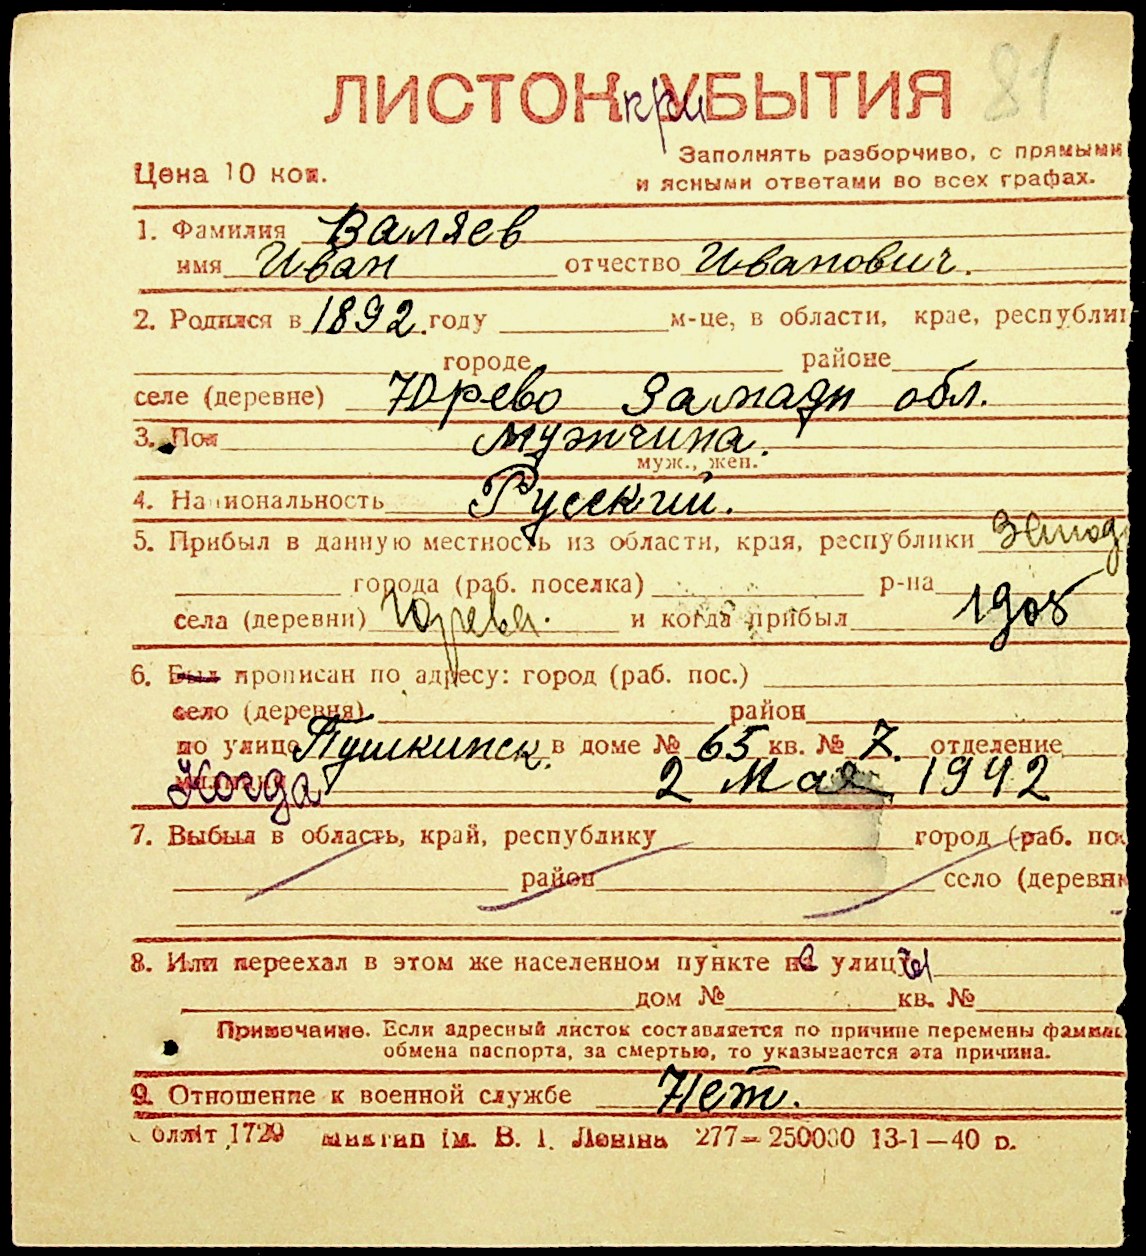 81
ЛИСТОК при УБЫТИЯ
Заполнять разборчиво, с прямыми
Цена 10 коп.
и ясными ответами во всех графах.
1. Фамилия Валяев
имя Иван отчество Иванович.
2. Родился в 1892. году м-це, в области, крае, республи
городе районе
селе (деревне) Юрево Запади обл.
3. Пол мужчина.
муж., жен.
4. Национальность Русский.
5. Прибыл в данную местность из области, края, республики
города (раб. поселка) р-на
села (деревни) и когда прибыл 1905
6. Был прописан по адресу: город (раб. пос.)
село (деревня) район
по улице Пушкинск. в доме № 65 кв. № 7. отделение
Когда 2 Мая 1942
7. Выбыл в область, край, республику город (раб. по
район село (деревн
8. Или переехал в этом же населенном пункте с улицы
дом № кв. №
Примечание. Если адресный листок составляется по причине перемены фамил
обмена паспорта, за смертью, то указывается эта причина.
9. Отношение к военной службе Нет.
1729 ім. В. І. Леніна 277—250000 13-1—40 р.